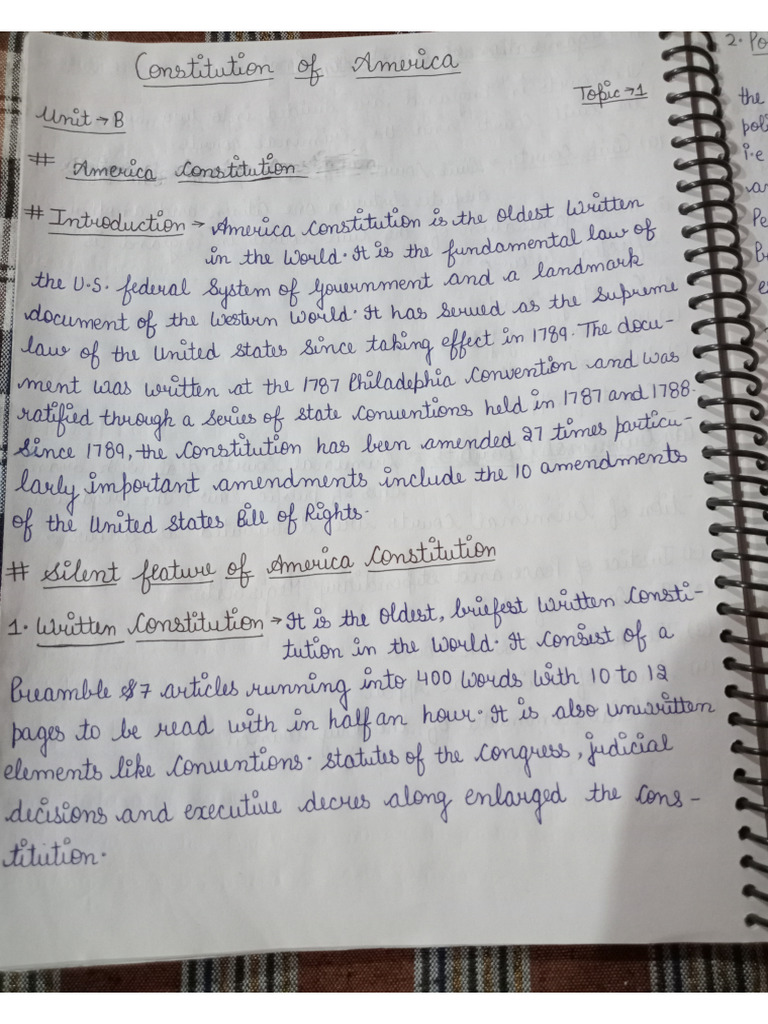 Constitution of America
Topic → 1
Unit → B
# America Constitution
# Introduction → America Constitution is the oldest written
in the world. It is the fundamental law of
the U.S. federal system of government and a landmark
document of the western world. It has served as the supreme
law of the United States since taking effect in 1789. The docu-
ment was written at the 1787 Philadephia Convention and was
ratified through a series of state conventions held in 1787 and 1788.
Since 1789, the Constitution has been amended 27 times particu-
larly important amendments include the 10 amendments
of the United States Bill of Rights.
# Silent feature of America Constitution
1. Written Constitution → It is the oldest, briefest written consti-
tution in the world. It consist of a
Preamble & 7 articles running into 400 words with 10 to 12
pages to be read with in half an hour. It is also unwritten
elements like conventions. statutes of the congress, judicial
decisions and executive decres along enlarged the cons-
titution.
2. Po
the
poli
i.e
Pe